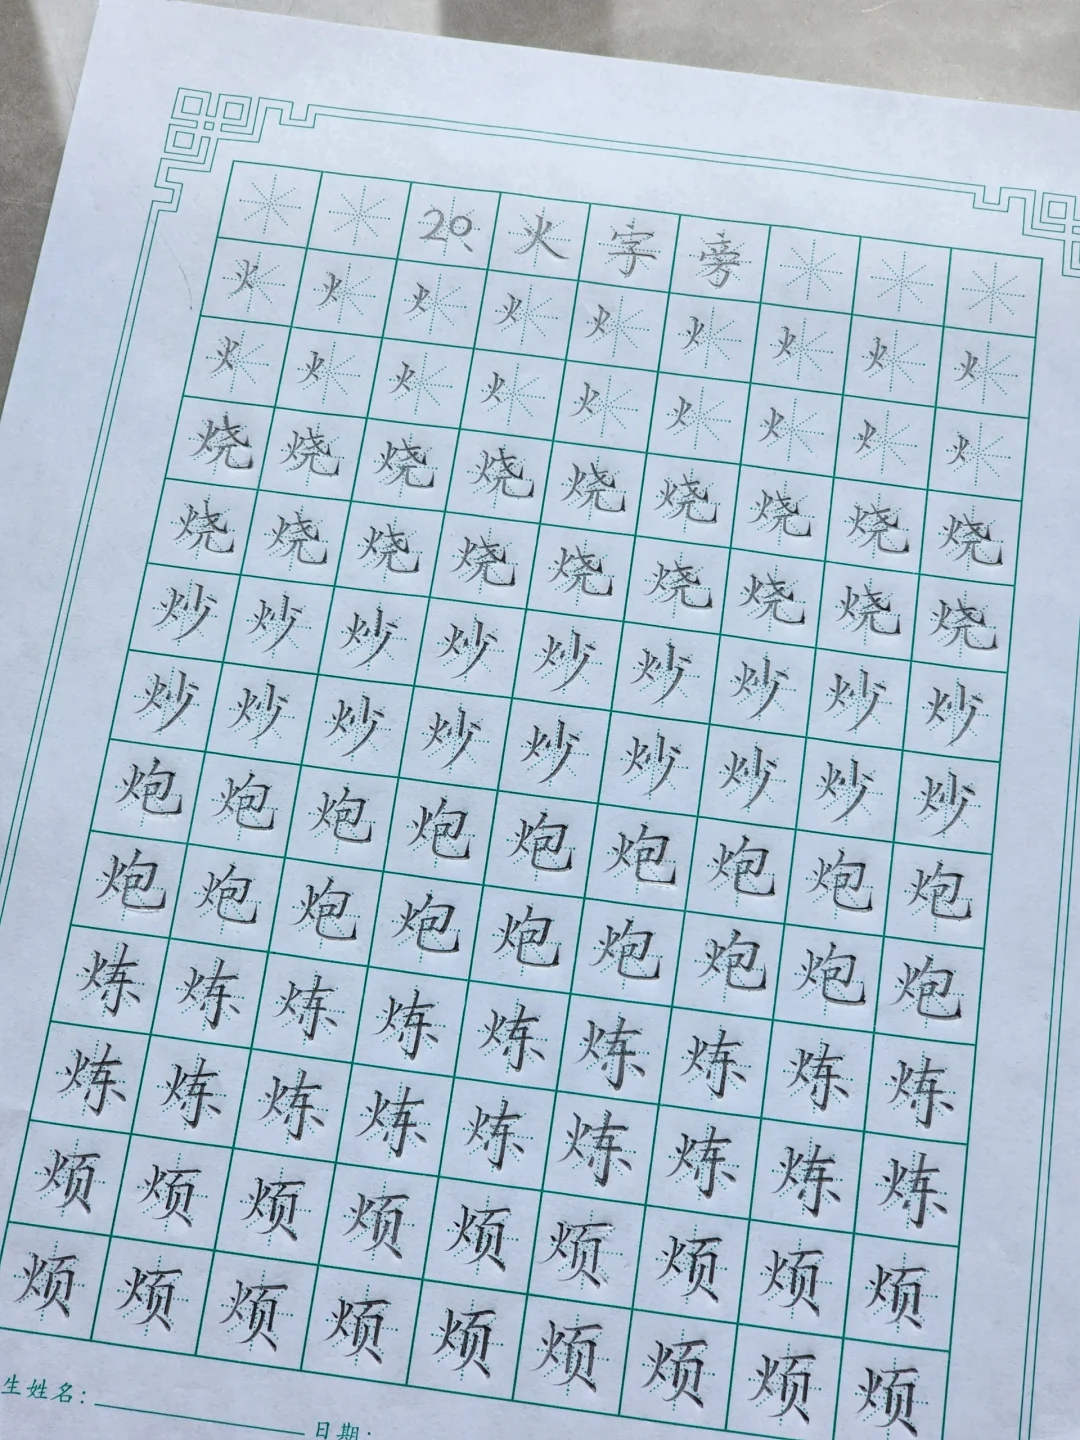 20、火字旁
火火火火火火火火火
火火火火火火火火火
烧烧烧烧烧烧烧烧烧
烧烧烧烧烧烧烧烧烧
炒炒炒炒炒炒炒炒炒
炒炒炒炒炒炒炒炒炒
炮炮炮炮炮炮炮炮炮
炮炮炮炮炮炮炮炮炮
炼炼炼炼炼炼炼炼炼
炼炼炼炼炼炼炼炼炼
烦烦烦烦烦烦烦烦烦
烦烦烦烦烦烦烦烦烦
生姓名：
日期：